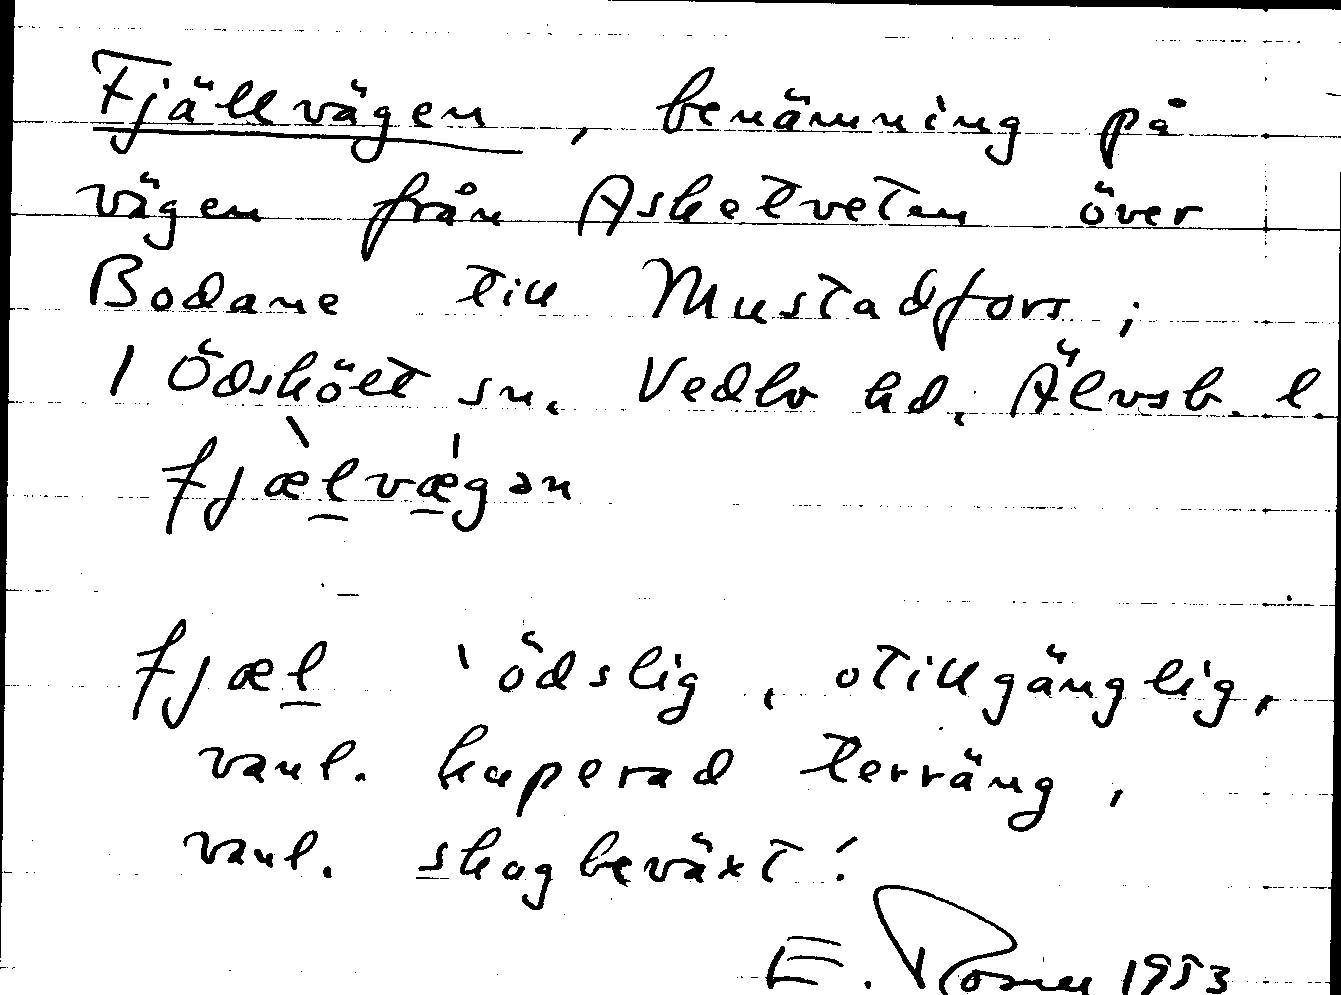 Fjällvägen, benämning på
vägen från Asketveten över
Bodane till Mustadfors;
i Ödskölt sn. Vedbo hd, Älvsb. l.
fjæ̀lvǽgən
fjæl 'ödslig, otillgänglig,
vanl. kuperad terräng,
vanl. skogbeväxt.'
E. Rosell 1953